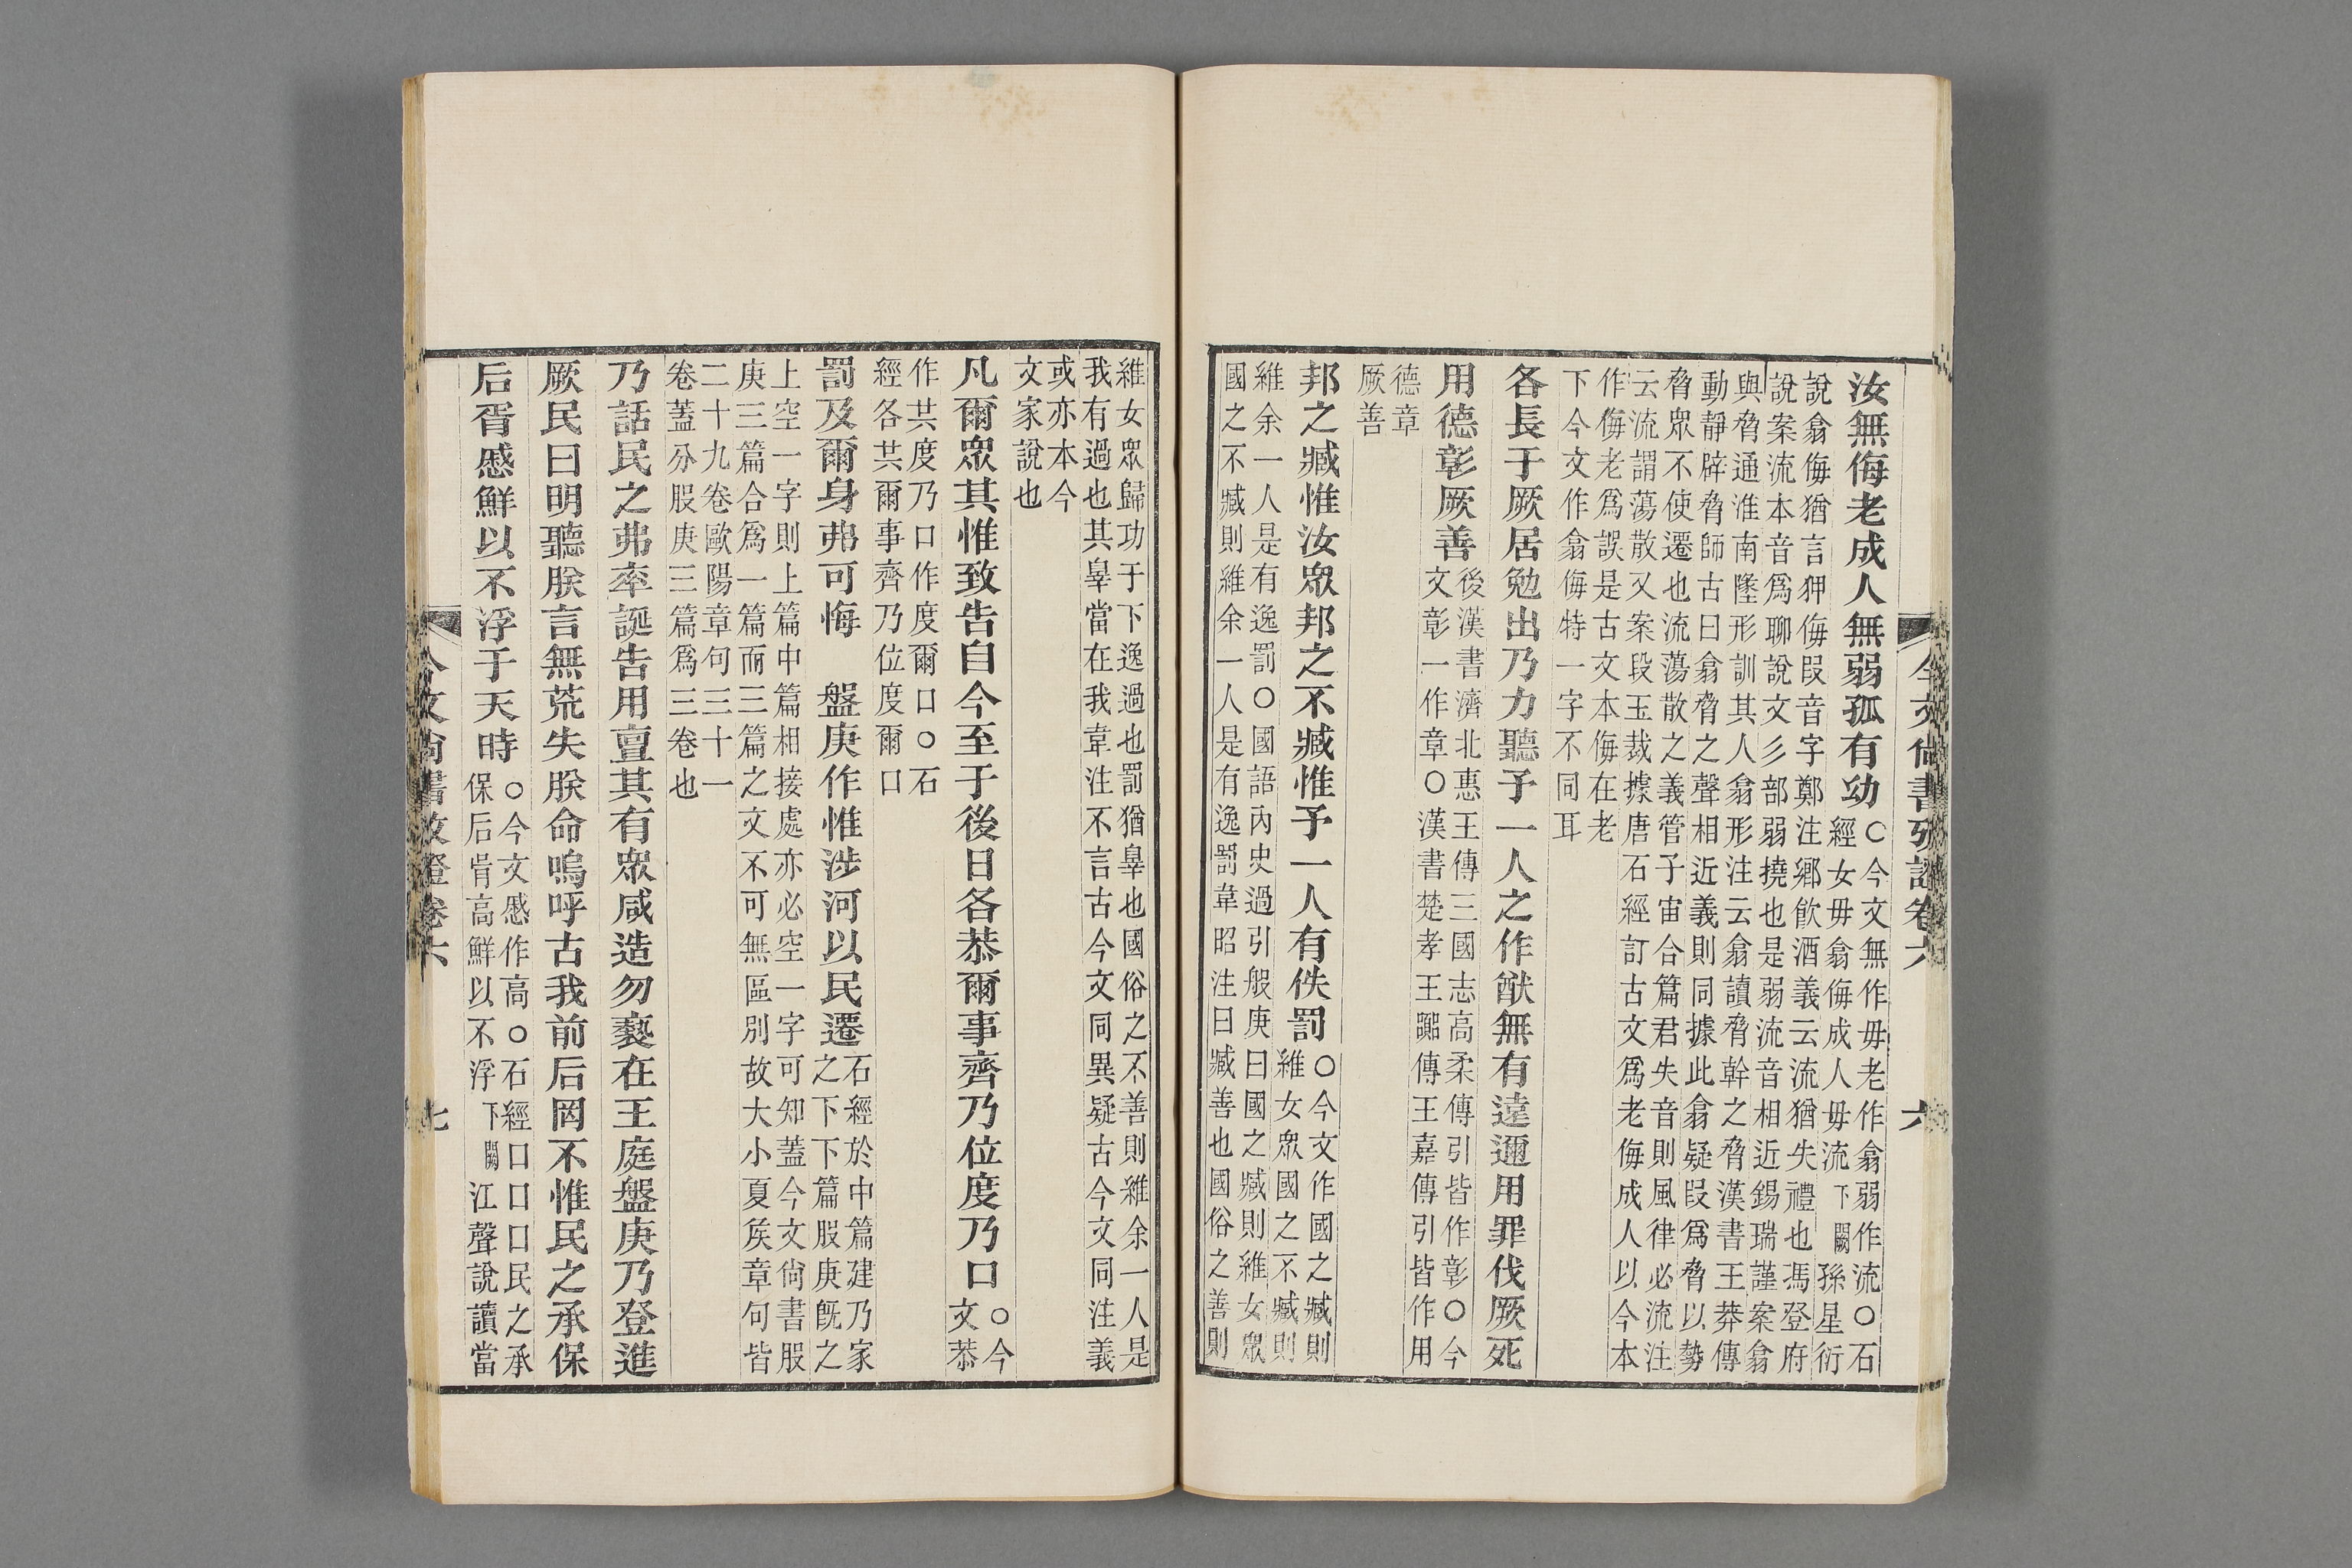 今文尚書攷證卷六
六
汝無侮老成人無弱孤有幼
○今文無作毋老作翕弱作流○石
經女毋翕侮成人毋流下闕孫星衍
說翕侮猶言狎侮叚音字鄭注鄉飲酒義云流猶失禮也馮登府
說案流本音爲聊說文彡部弱撓也是弱流音相近錫瑞謹案翕
與脅通淮南墬形訓其人翕形注云翕讀脅幹之脅漢書王莽傳
動靜辟脅師古曰翕脅之聲相近義則同據此翕疑叚爲脅以勢
脅眾不使遷也流蕩散之義管子宙合篇君失音則風律必流注
云流謂蕩散又案段玉裁據唐石經訂古文爲老侮成人以今本
作侮老爲誤是古文本侮在老
下今文作翕侮特一字不同耳
各長于厥居勉出乃力聽予一人之作猷無有遠邇用罪伐厥死
用德彰厥善
後漢書濟北惠王傳三國志高柔傳引皆作彰○今
文彰一作章○漢書楚孝王嚻傳王嘉傳引皆作用
德章
厥善
邦之臧惟汝眾邦之不臧惟予一人有佚罰
○今文作國之臧則
維女眾國之不臧則
維余一人是有逸罰○國語內史過引般庚曰國之臧則維女眾
國之不臧則維余一人是有逸罰韋昭注曰臧善也國俗之善則
維女眾歸功于下逸過也罰猶辠也國俗之不善則維余一人是
我有過也其辠當在我韋注不言古今文同異疑古今文同注義
或亦本今
文家說也
凡爾眾其惟致告自今至于後日各恭爾事齊乃位度乃口
○今
文恭
作共度乃口作度爾口○石
經各共爾事齊乃位度爾口
罰及爾身弗可悔　盤庚作惟涉河以民遷
石經於中篇建乃家
之下下篇般庚旣之
上空一字則上篇中篇相接處亦必空一字可知蓋今文尙書般
庚三篇合爲一篇而三篇之文不可無區別故大小夏矦章句皆
二十九卷歐陽章句三十一
卷蓋分般庚三篇爲三卷也
乃話民之弗率誕告用亶其有眾咸造勿褻在王庭盤庚乃登進
厥民曰明聽朕言無荒失朕命嗚呼古我前后罔不惟民之承保
后胥慼鮮以不浮于天時
○今文慼作高○石經口口口民之承
保后胥高鮮以不浮下闕江聲說讀當
今文尚書攷證卷六
七